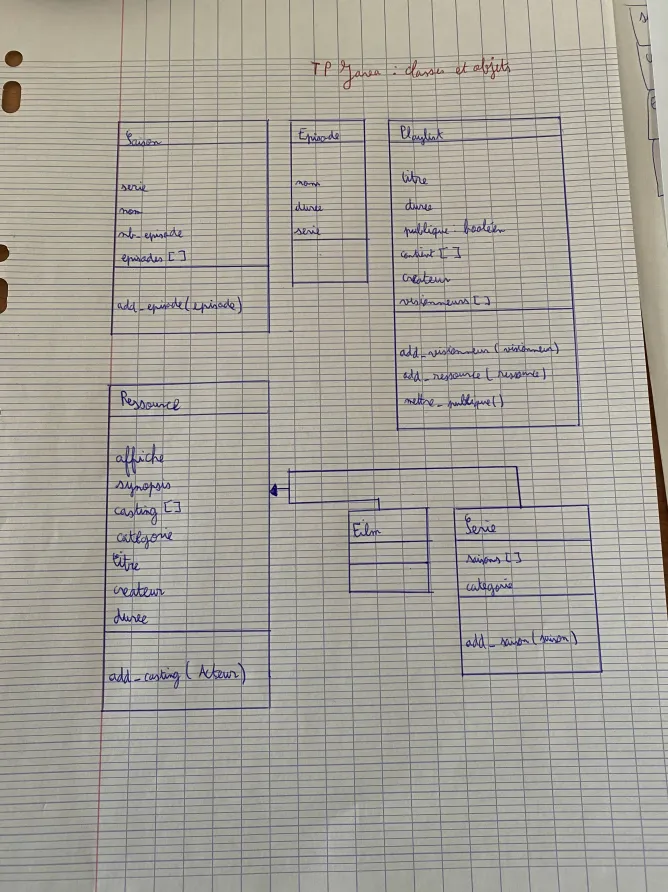 TP Java : classes et objets
Saison
serie
nom
nb_episode
episodes []
add_episode(episode)
Episode
nom
durée
serie
Playlist
titre
durée
publique : booléen
contient []
createur
visionneurs []
add_visionneur(visionneur)
add_ressource(ressource)
mettre_publique()
Ressource
affiche
synopsis
casting []
catégorie
titre
createur
durée
add_casting(Acteur)
Film
Serie
saisons []
categorie
add_saison(saison)